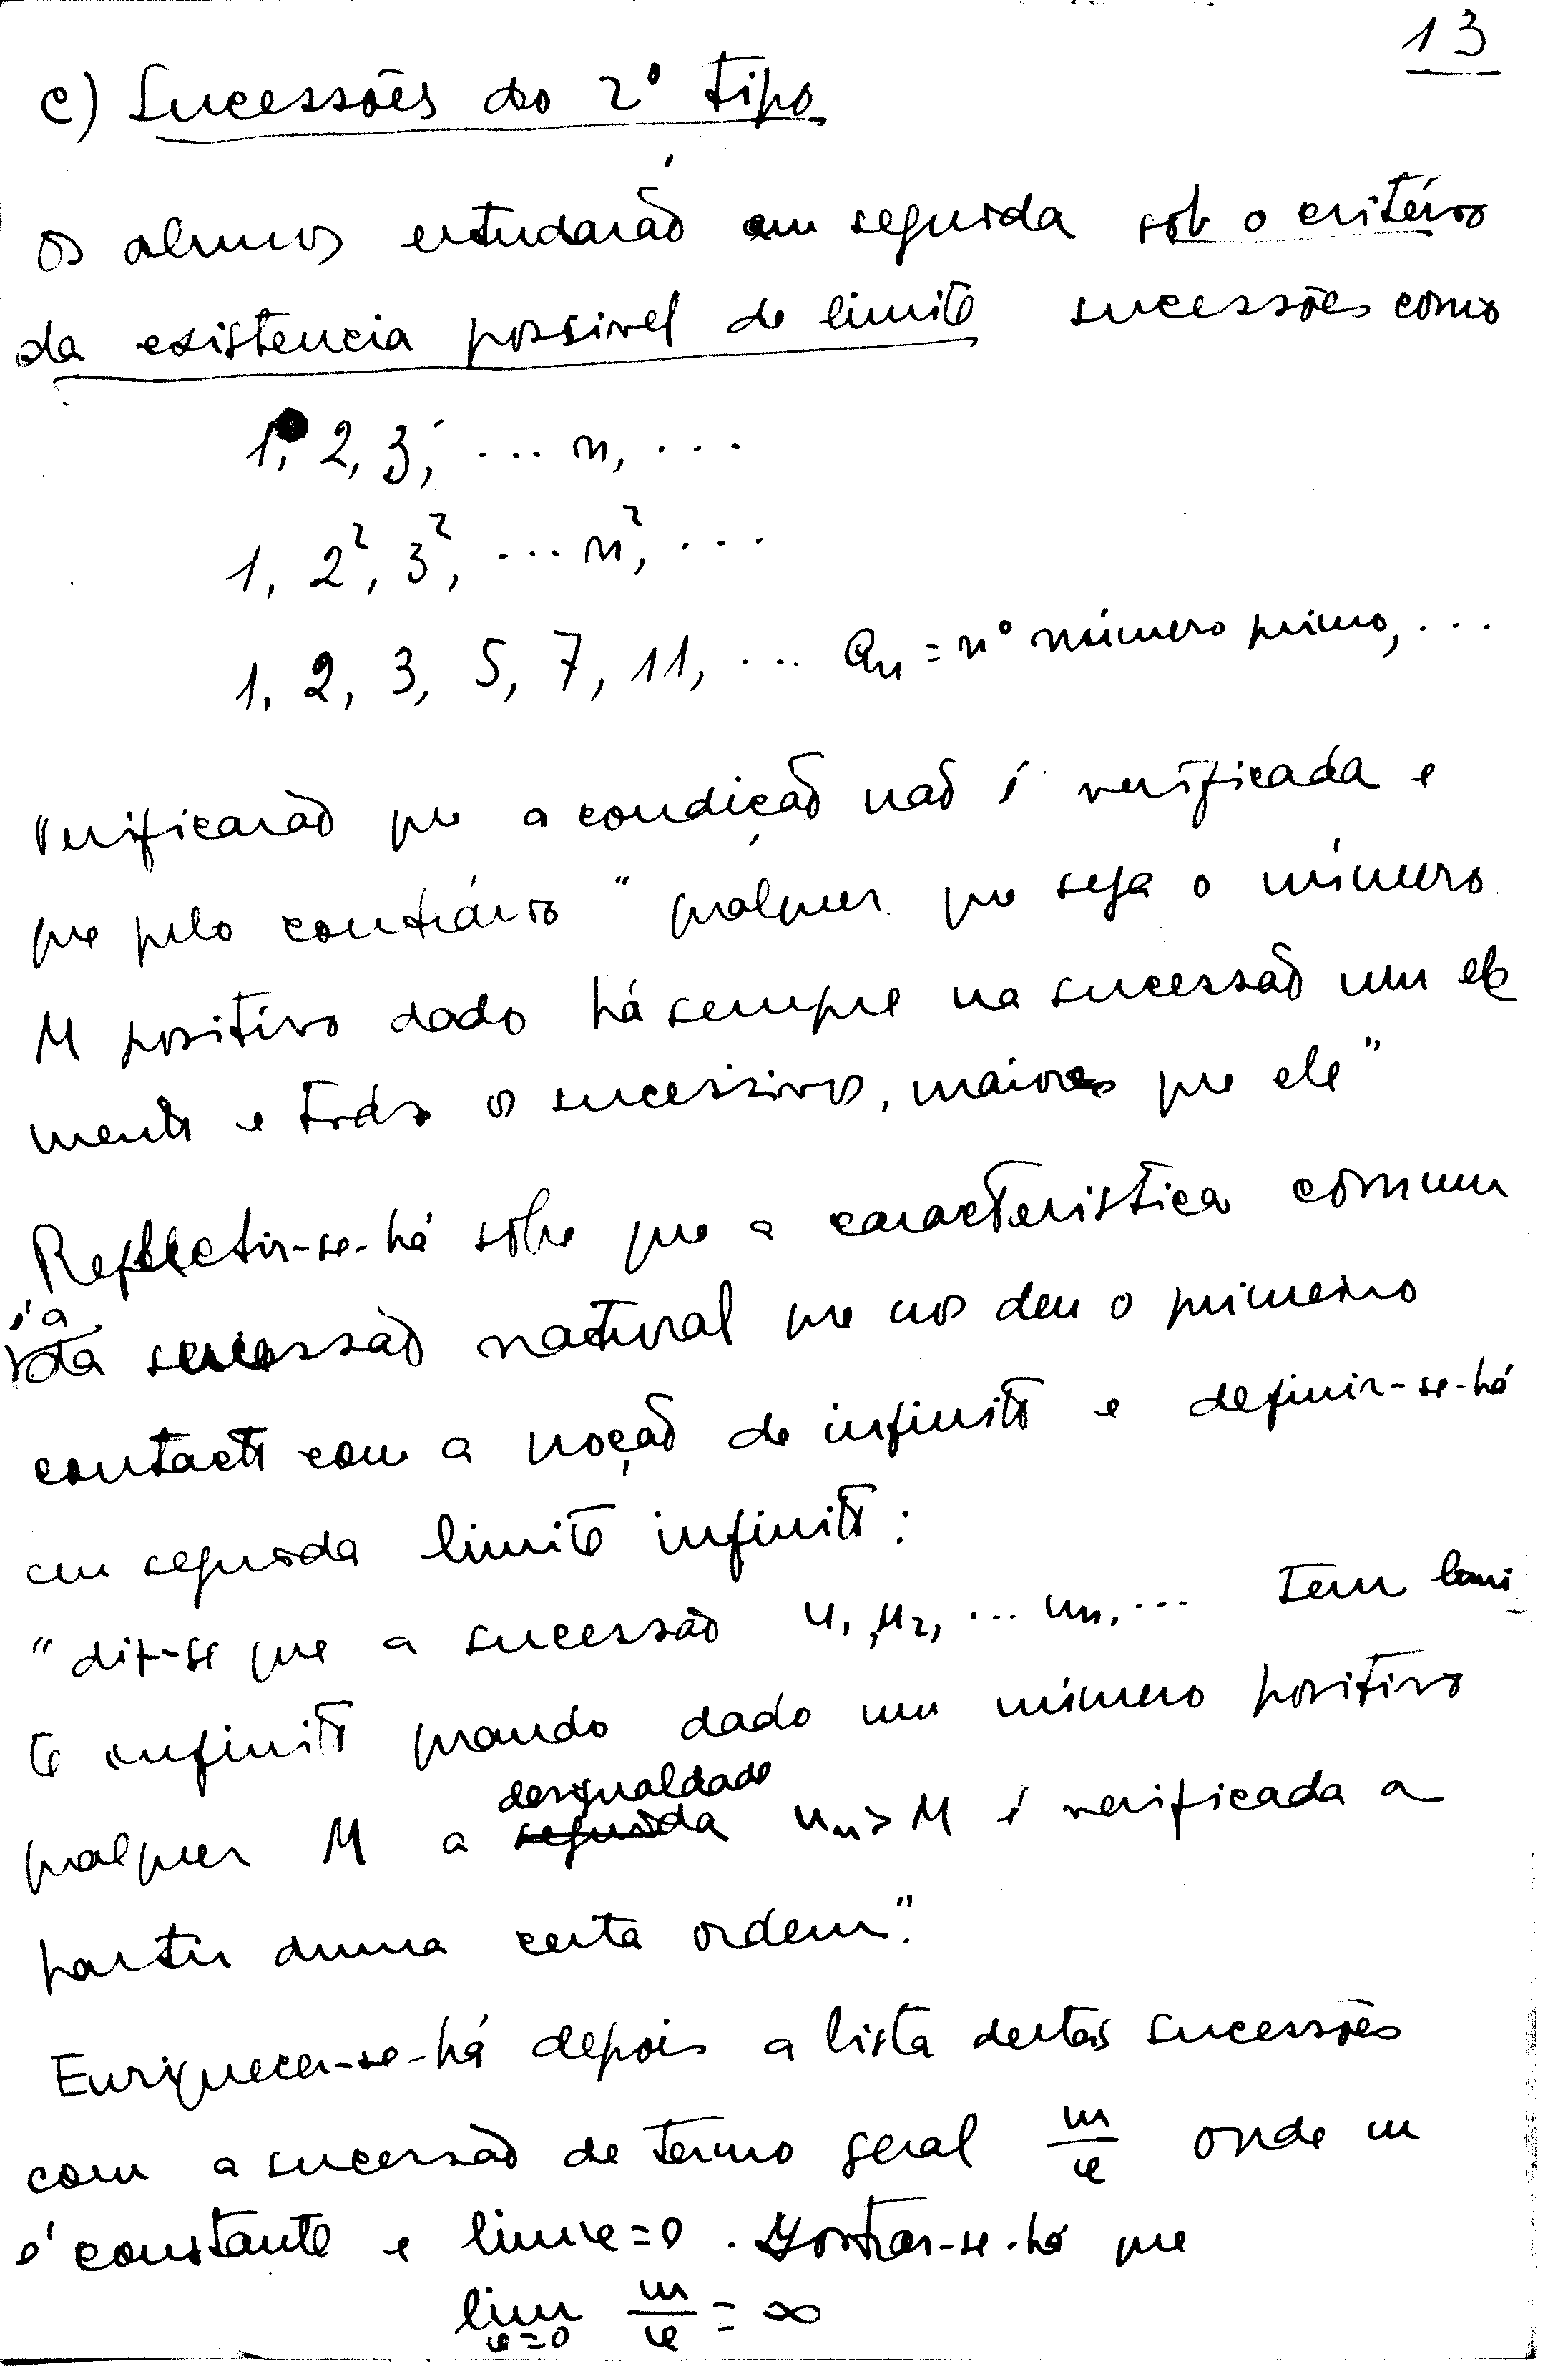 13
c) Sucessões do 2º tipo
Os alunos estudarão em seguida sob o critério
da existencia possivel de limite sucessões como
1, 2, 3, ... n, ...
1, 2², 3², ... n², ...
1, 2, 3, 5, 7, 11, ... aₙ = nº número primo, ...
Verificarão que a condição não é verificada e
que pelo contrário "qualquer que seja o número
M positivo dado há sempre na sucessão um ele
mento e todos os sucessivos, maiores que ele"
Reflectir-se-há sobre que a caracteristica comum
é a
da sucessão natural que nos deu o primeiro
contacto com a noção de infinito e definir-se-há
em seguida limite infinito:
"diz-se que a sucessão u₁, u₂, ... uₙ, ... tem limi
te infinito quando dado um número positivo
desigualdade
qualquer M a seguida uₙ > M é verificada a
partir duma certa ordem".
Enriquecer-se-há depois a lista destas sucessões
com a sucessão de termo geral m/φ onde m
é constante e lim φ = 0. Mostrar-se-há que
lim φ=0 m/φ = ∞